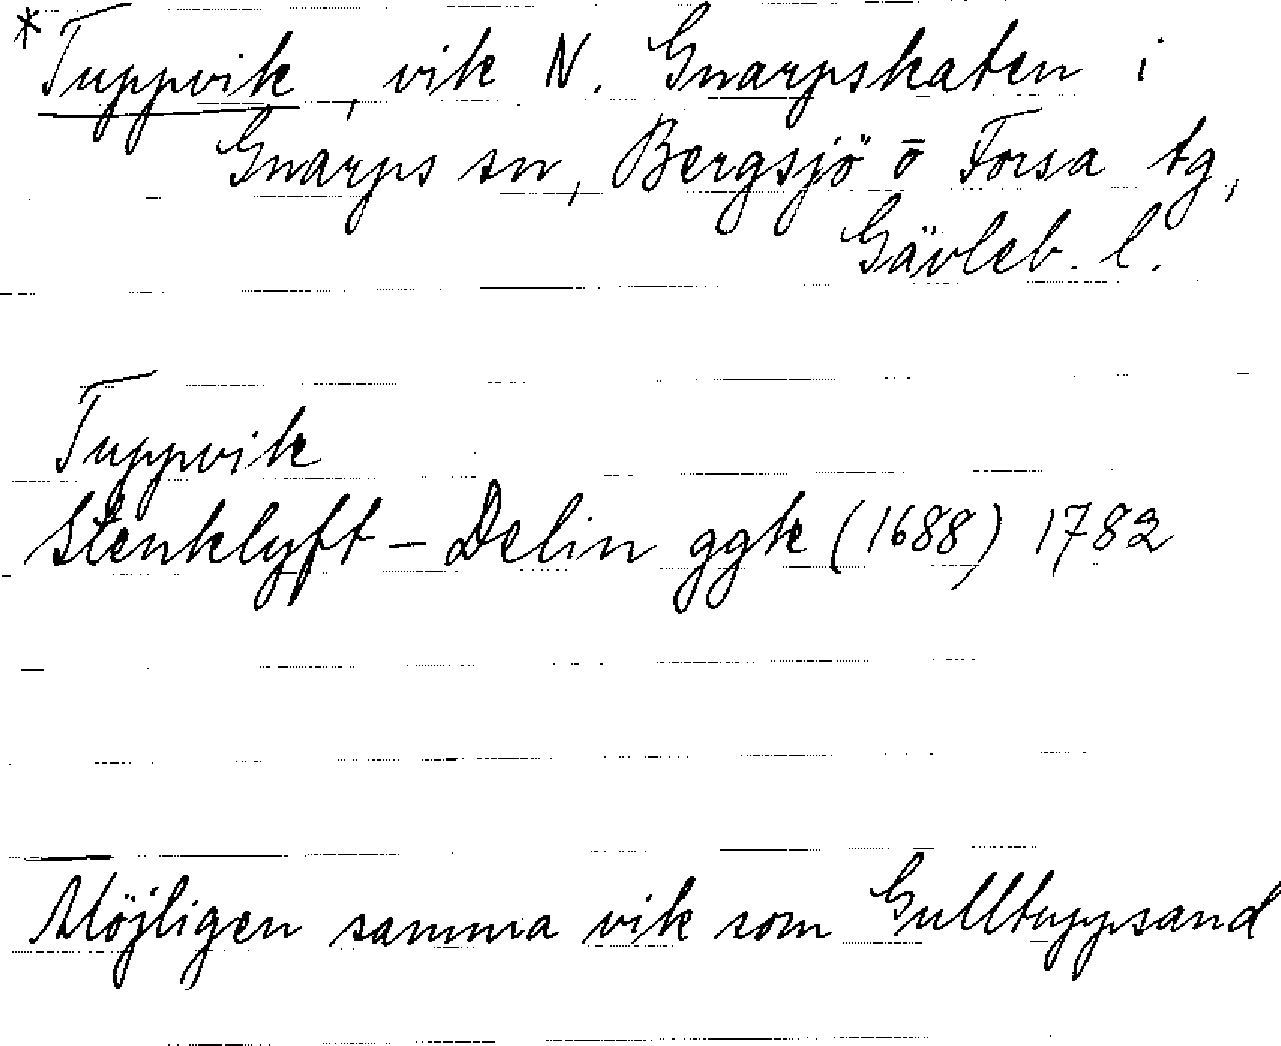 *Tuppvik, vik N. Gnarpskaten i
Gnarps sn, Bergsjö o Forsa tg,
Gävleb. l.
Tuppvik
Stenklyft – Delin ggk (1688) 1782
Möjligen samma vik som Gulltuppsand